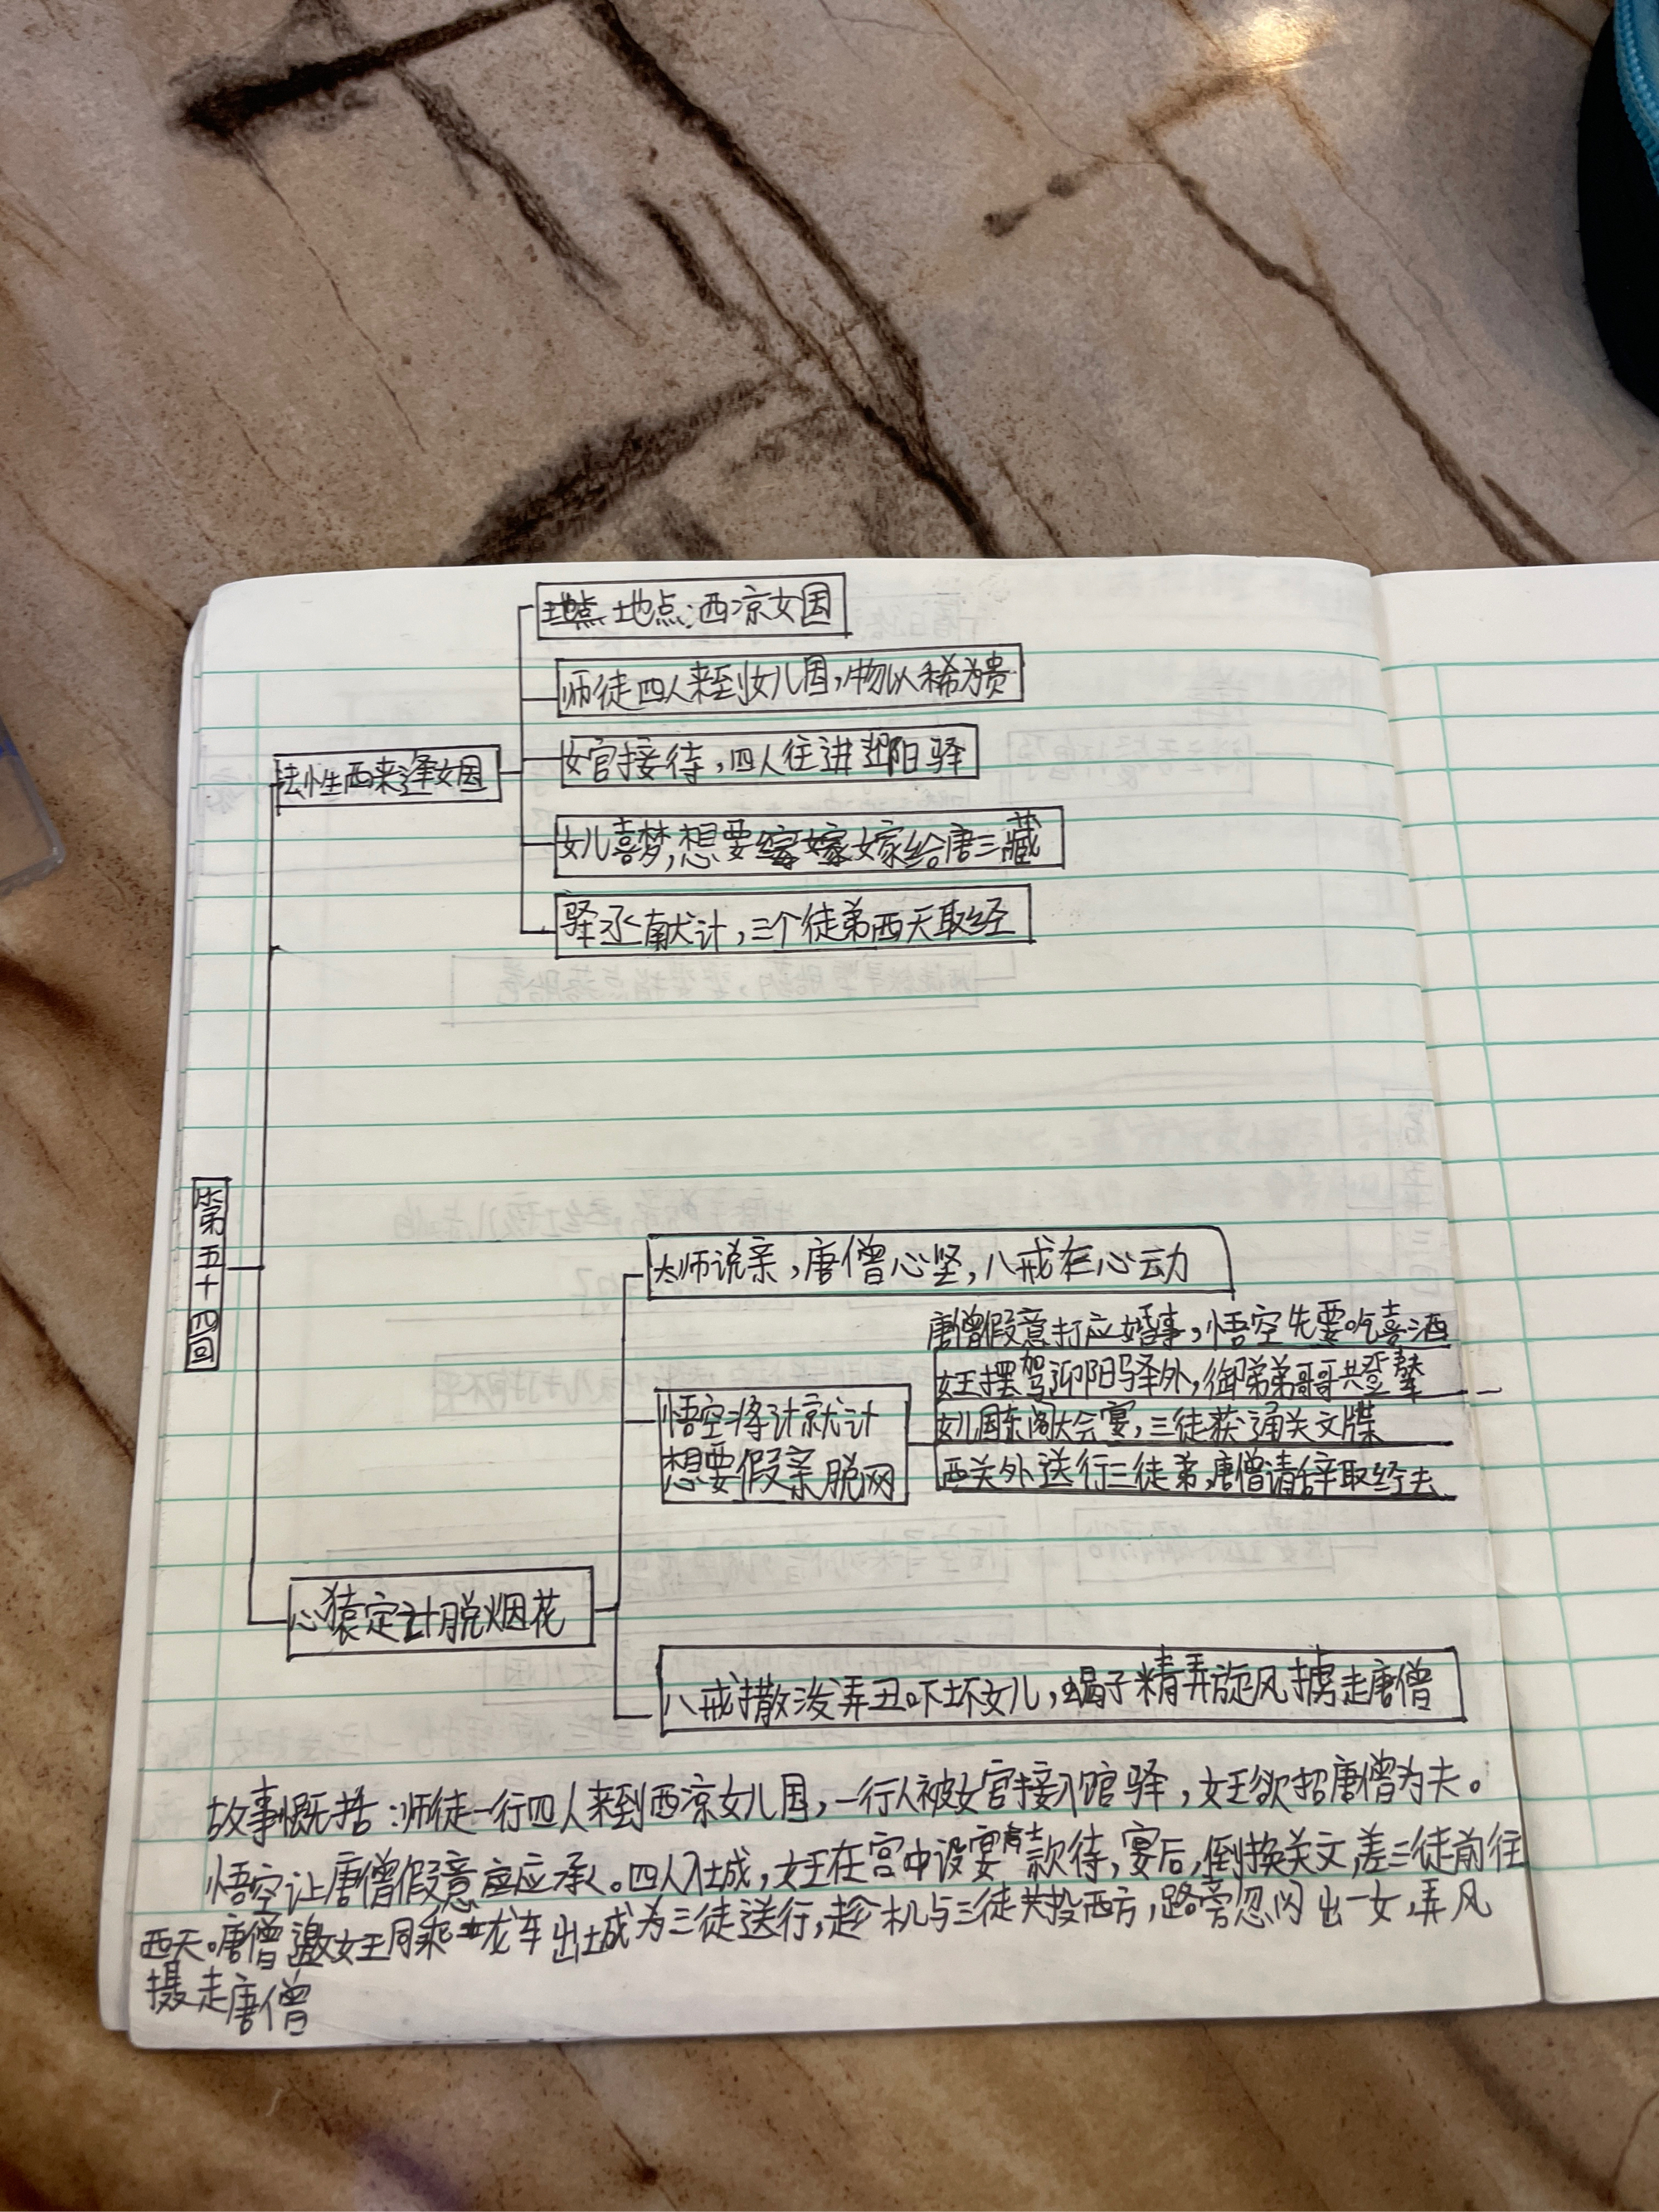 地点:西凉女国
师徒四人来到女儿国,物以稀为贵
法性西来逢女国
女官接待,四人往进迎阳驿
女儿喜梦,想要嫁给唐三藏
驿丞献计,三个徒弟西天取经
第五十四回
太师说亲,唐僧心坚,八戒在心动
唐僧假意打应婚事,悟空先要吃喜酒
女王摆驾迎阳驿外,御弟弟哥哥共登辇
悟空将计就计
想要假亲脱网
女儿国东阁大会宴,三徒获通关文牒
西关外送行三徒弟,唐僧请辞取经去
心猿定计脱烟花
八戒撒泼弄丑吓坏女儿,蝎子精弄旋风掳走唐僧
故事概括:师徒一行四人来到西凉女儿国,一行人被女官接入馆驿,女王欲招唐僧为夫。
悟空让唐僧假意应承。四人入城,女王在宫中设宴款待,宴后,倒换关文,差三徒前往
西天。唐僧邀女王同乘龙车出城为三徒送行,趁机与三徒共投西方,路旁忽闪出一女,弄风
摄走唐僧